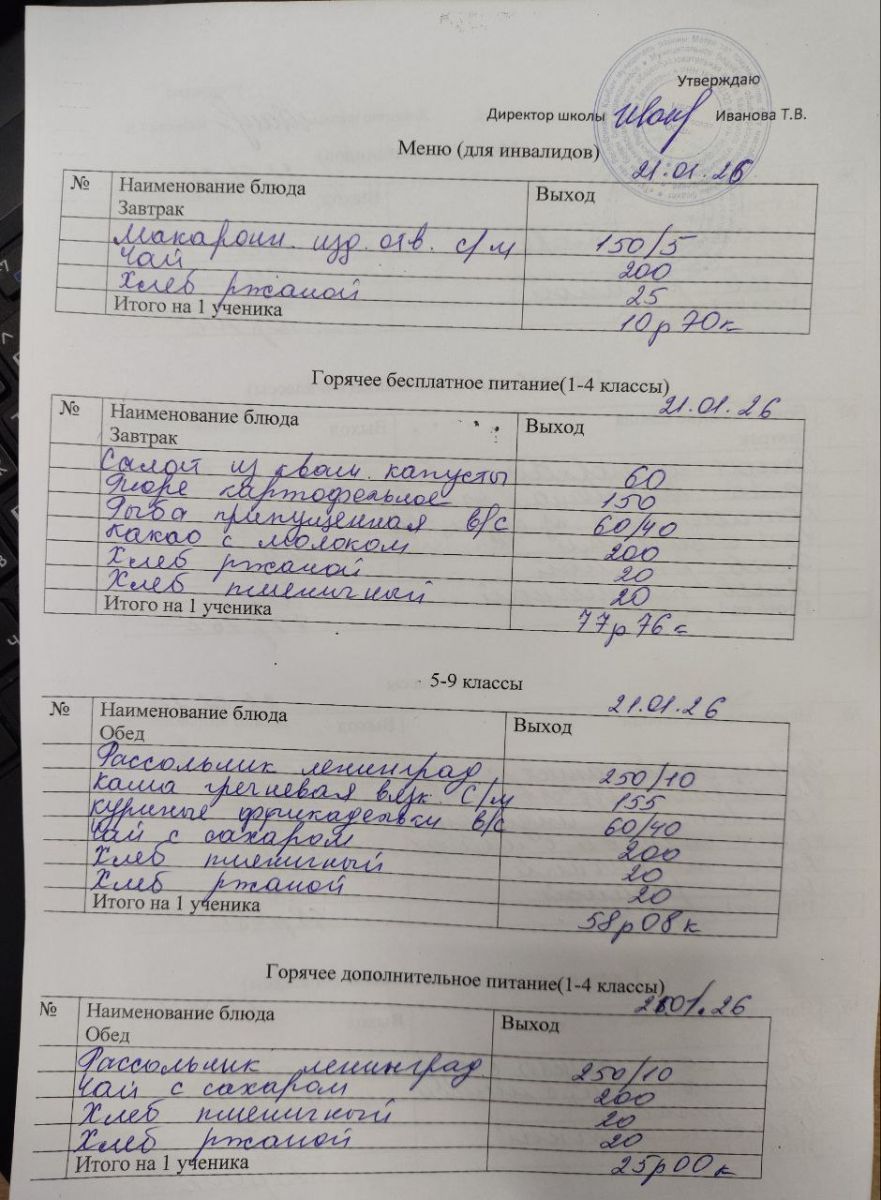 Утверждаю
Директор школы Иванова Т.В.
Меню (для инвалидов)
21.01.26
№ Наименование блюда Выход
Завтрак
Макарон. изд. отв. с/м 150/5
Чай 200
Хлеб ржаной 25
Итого на 1 ученика 10р70к
Горячее бесплатное питание(1-4 классы)
21.01.26
№ Наименование блюда Выход
Завтрак
Салат из кваш. капусты 60
Пюре картофельное 150
Рыба припущенная в/с 60/40
Какао с молоком 200
Хлеб ржаной 20
Хлеб пшеничный 20
Итого на 1 ученика 77р76к
5-9 классы
21.01.26
№ Наименование блюда Выход
Обед
Рассольник ленинград 250/10
Каша гречневая вязк. с/м 155
Куриные фрикадельки в/с 60/40
Чай с сахаром 200
Хлеб пшеничный 20
Хлеб ржаной 20
Итого на 1 ученика 58р08к
Горячее дополнительное питание(1-4 классы)
21.01.26
№ Наименование блюда Выход
Обед
Рассольник ленинград 250/10
Чай с сахаром 200
Хлеб пшеничный 20
Хлеб ржаной 20
Итого на 1 ученика 25р00к